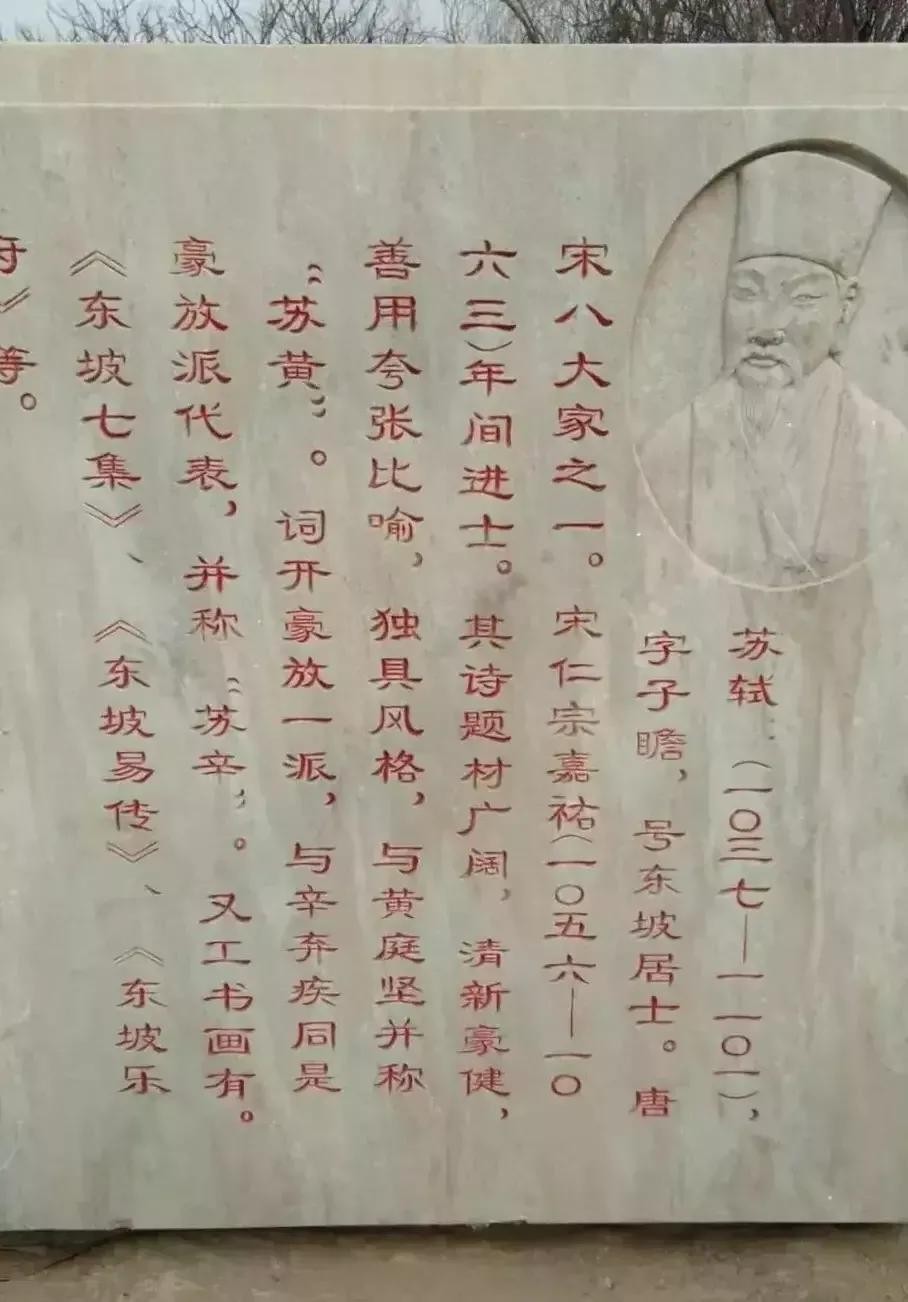 苏轼（一〇三七—一一〇一），
字子瞻，号东坡居士。唐
宋八大家之一。宋仁宗嘉祐（一〇五六—一〇
六三）年间进士。其诗题材广阔，清新豪健，
善用夸张比喻，独具风格，与黄庭坚并称
“苏黄”。词开豪放一派，与辛弃疾同是
豪放派代表，并称“苏辛”。又工书画有。
《东坡七集》、《东坡易传》、《东坡乐
府》等。